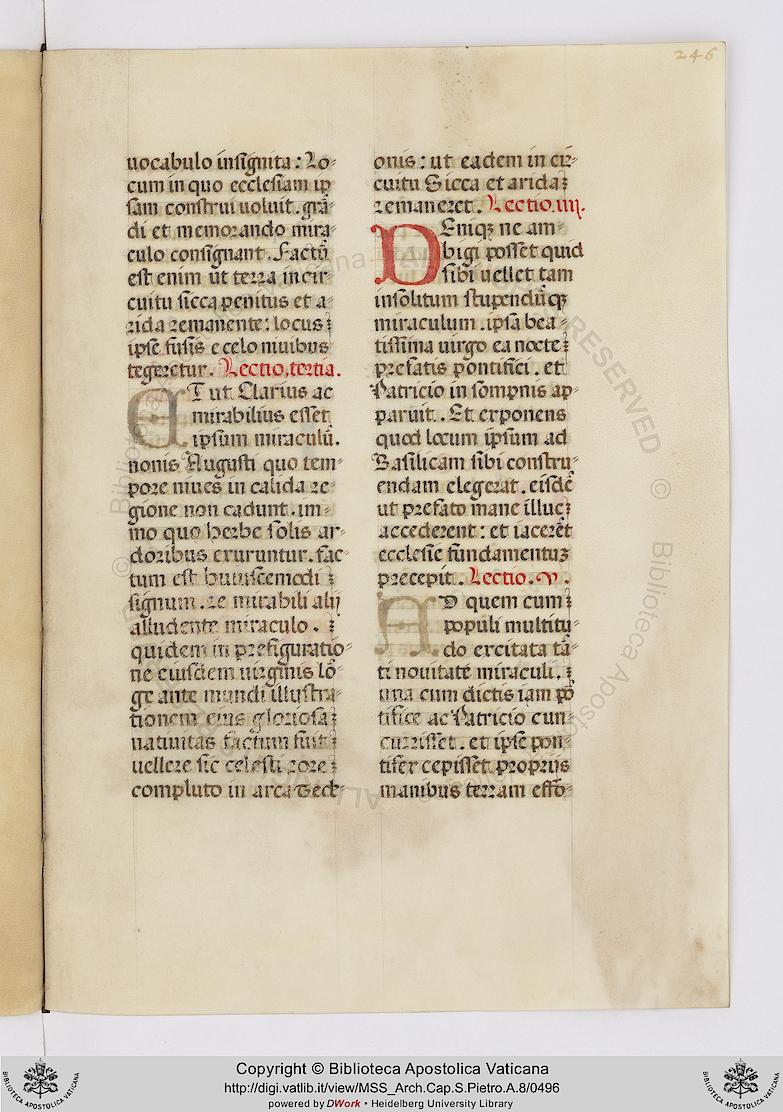 246
uocabulo insignita: Lo-
cum in quo ecclesiam ip
sam construi uoluit. grã-
di et memorando mira-
culo consignant. Factũ
est enim ut terra in cir-
cuitu sicca penitus et a-
rida remanente: locus
ipse fusis e celo niuibus
tegeretur. Lectio, tertia.
ET ut Clarius ac
mirabilius esset
ipsum miraculũ.
nonis Augusti quo tem-
pore niues in calida re-
gione non cadunt. im-
mo quo herbe solis ar-
doribus exuruntur. fac-
tum est huiuscemodi
signum. re mirabili alij
alludente miraculo.
quidem in prefiguratio-
ne eiusdem uirginis lõ-
ge ante mundi illustra-
tionem eius gloriosa
natiuitas factum fuit
uellere sic celesti rore
compluto in arca Gede-
onis: ut eadem in cir-
cuitu Sicca et arida
remaneret. Lectio. iiij.
DEniqꝫ ne am-
bigi posset quid
sibi uellet tam
insolitum stupendũqꝫ
miraculum. ipsa bea-
tissima uirgo ea nocte
prefatis pontifici. et
Patricio in sompnis ap-
paruit. Et exponens
quod locum ipsum ad
Basilicam sibi constru-
endam elegerat. eisdẽ
ut prefato mane illuc
accederent: et iacerẽt
ecclesie fundamentuꝫ
precepit. Lectio. v.
AD quem cum
populi multitu-
do excitata tã-
ti nouitate miraculi.
una cum dictis iam põ
tifice ac Patricio cun-
currisset. et ipse pon-
tifex cepisset proprijs
manibus terram effo-
Copyright © Biblioteca Apostolica Vaticana
http://digi.vatlib.it/view/MSS_Arch.Cap.S.Pietro.A.8/0496
powered by DWork • Heidelberg University Library